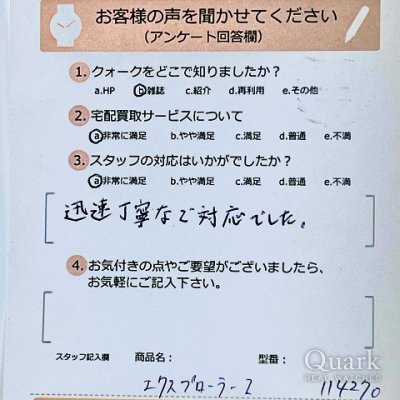 お客様の声を聞かせてください
（アンケート回答欄）
1. クォークをどこで知りましたか？
a.HP b.雑誌 c.紹介 d.再利用 e.その他
2. 宅配買取サービスについて
a.非常に満足 b.やや満足 c.満足 d.普通 e.不満
3. スタッフの対応はいかがでしたか？
a.非常に満足 b.やや満足 c.満足 d.普通 e.不満
迅速丁寧なご対応でした。
4. お気付きの点やご要望がございましたら、
お気軽にご記入下さい。
スタッフ記入欄 商品名： 型番：
エクスプローラーI 114270
Quark
REAL WATCHES